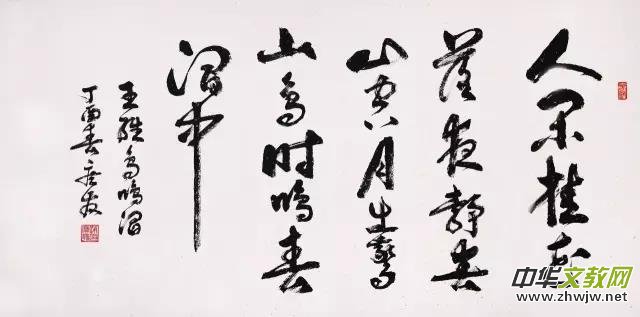 人闲桂花
落夜静春
山空月出惊
山鸟时鸣春
涧中
王维鸟鸣涧
丁酉春
中华文教网
www.zhwjw.net